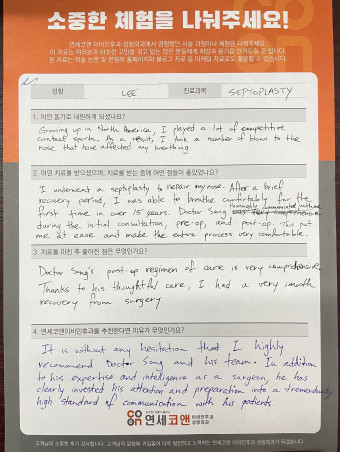 소중한 체험을 나눠주세요!
연세코앤 이비인후과 성형외과에서 경험했던 시술 과정이나 체험을 나눠주세요.
이 자료는 여러분과 비슷한 고민을 하고 있는 많은 분들에게 희망과 용기를 안겨드릴 것 입니다.
본 자료는 학술 논문 및 본원의 홈페이지와 블로그 자료 등 마케팅 자료로도 활용할 수 있습니다.
성함 LEE 진료과목 SEPTOPLASTY
1. 어떤 동기로 내원하게 되셨나요?
Growing up in North America, I played a lot of competitive
contact sports. As a result, I took a number of blows to the
nose that have affected my breathing.
2. 어떤 치료를 받으셨으며, 치료를 받는 중에 어떤 점들이 좋았었나요?
I underwent a septoplasty to repair my nose. After a brief
recovery period, I was able to breathe comfortably for the
first time in over 15 years. Doctor Song thoroughly communicated with me
during the initial consultation, pre-op, and post-op. This put
me at ease and made the entire process very comfortable.
3. 치료를 마친 후 좋아진 점은 무엇인가요?
Doctor Song's post-op regimen of care is very comprehensive.
Thanks to his thoughtful care, I had a very smooth
recovery from surgery
4. 연세코앤이비인후과를 추천한다면 이유가 무엇인가요?
It is without any hesitation that I highly
recommend Doctor Song and his team. In addition
to his expertise and intelligence as a surgeon, he has
clearly invested his attention and preparation into a tremendously
high standard of communication with his patients.
연세코앤 이비인후과
성형외과
고객님의 소중한 후기 감사합니다. 고객님의 말씀에 귀기울여 더욱 발전하고 노력하는 연세코앤 이비인후과 성형외과가 되겠습니다.